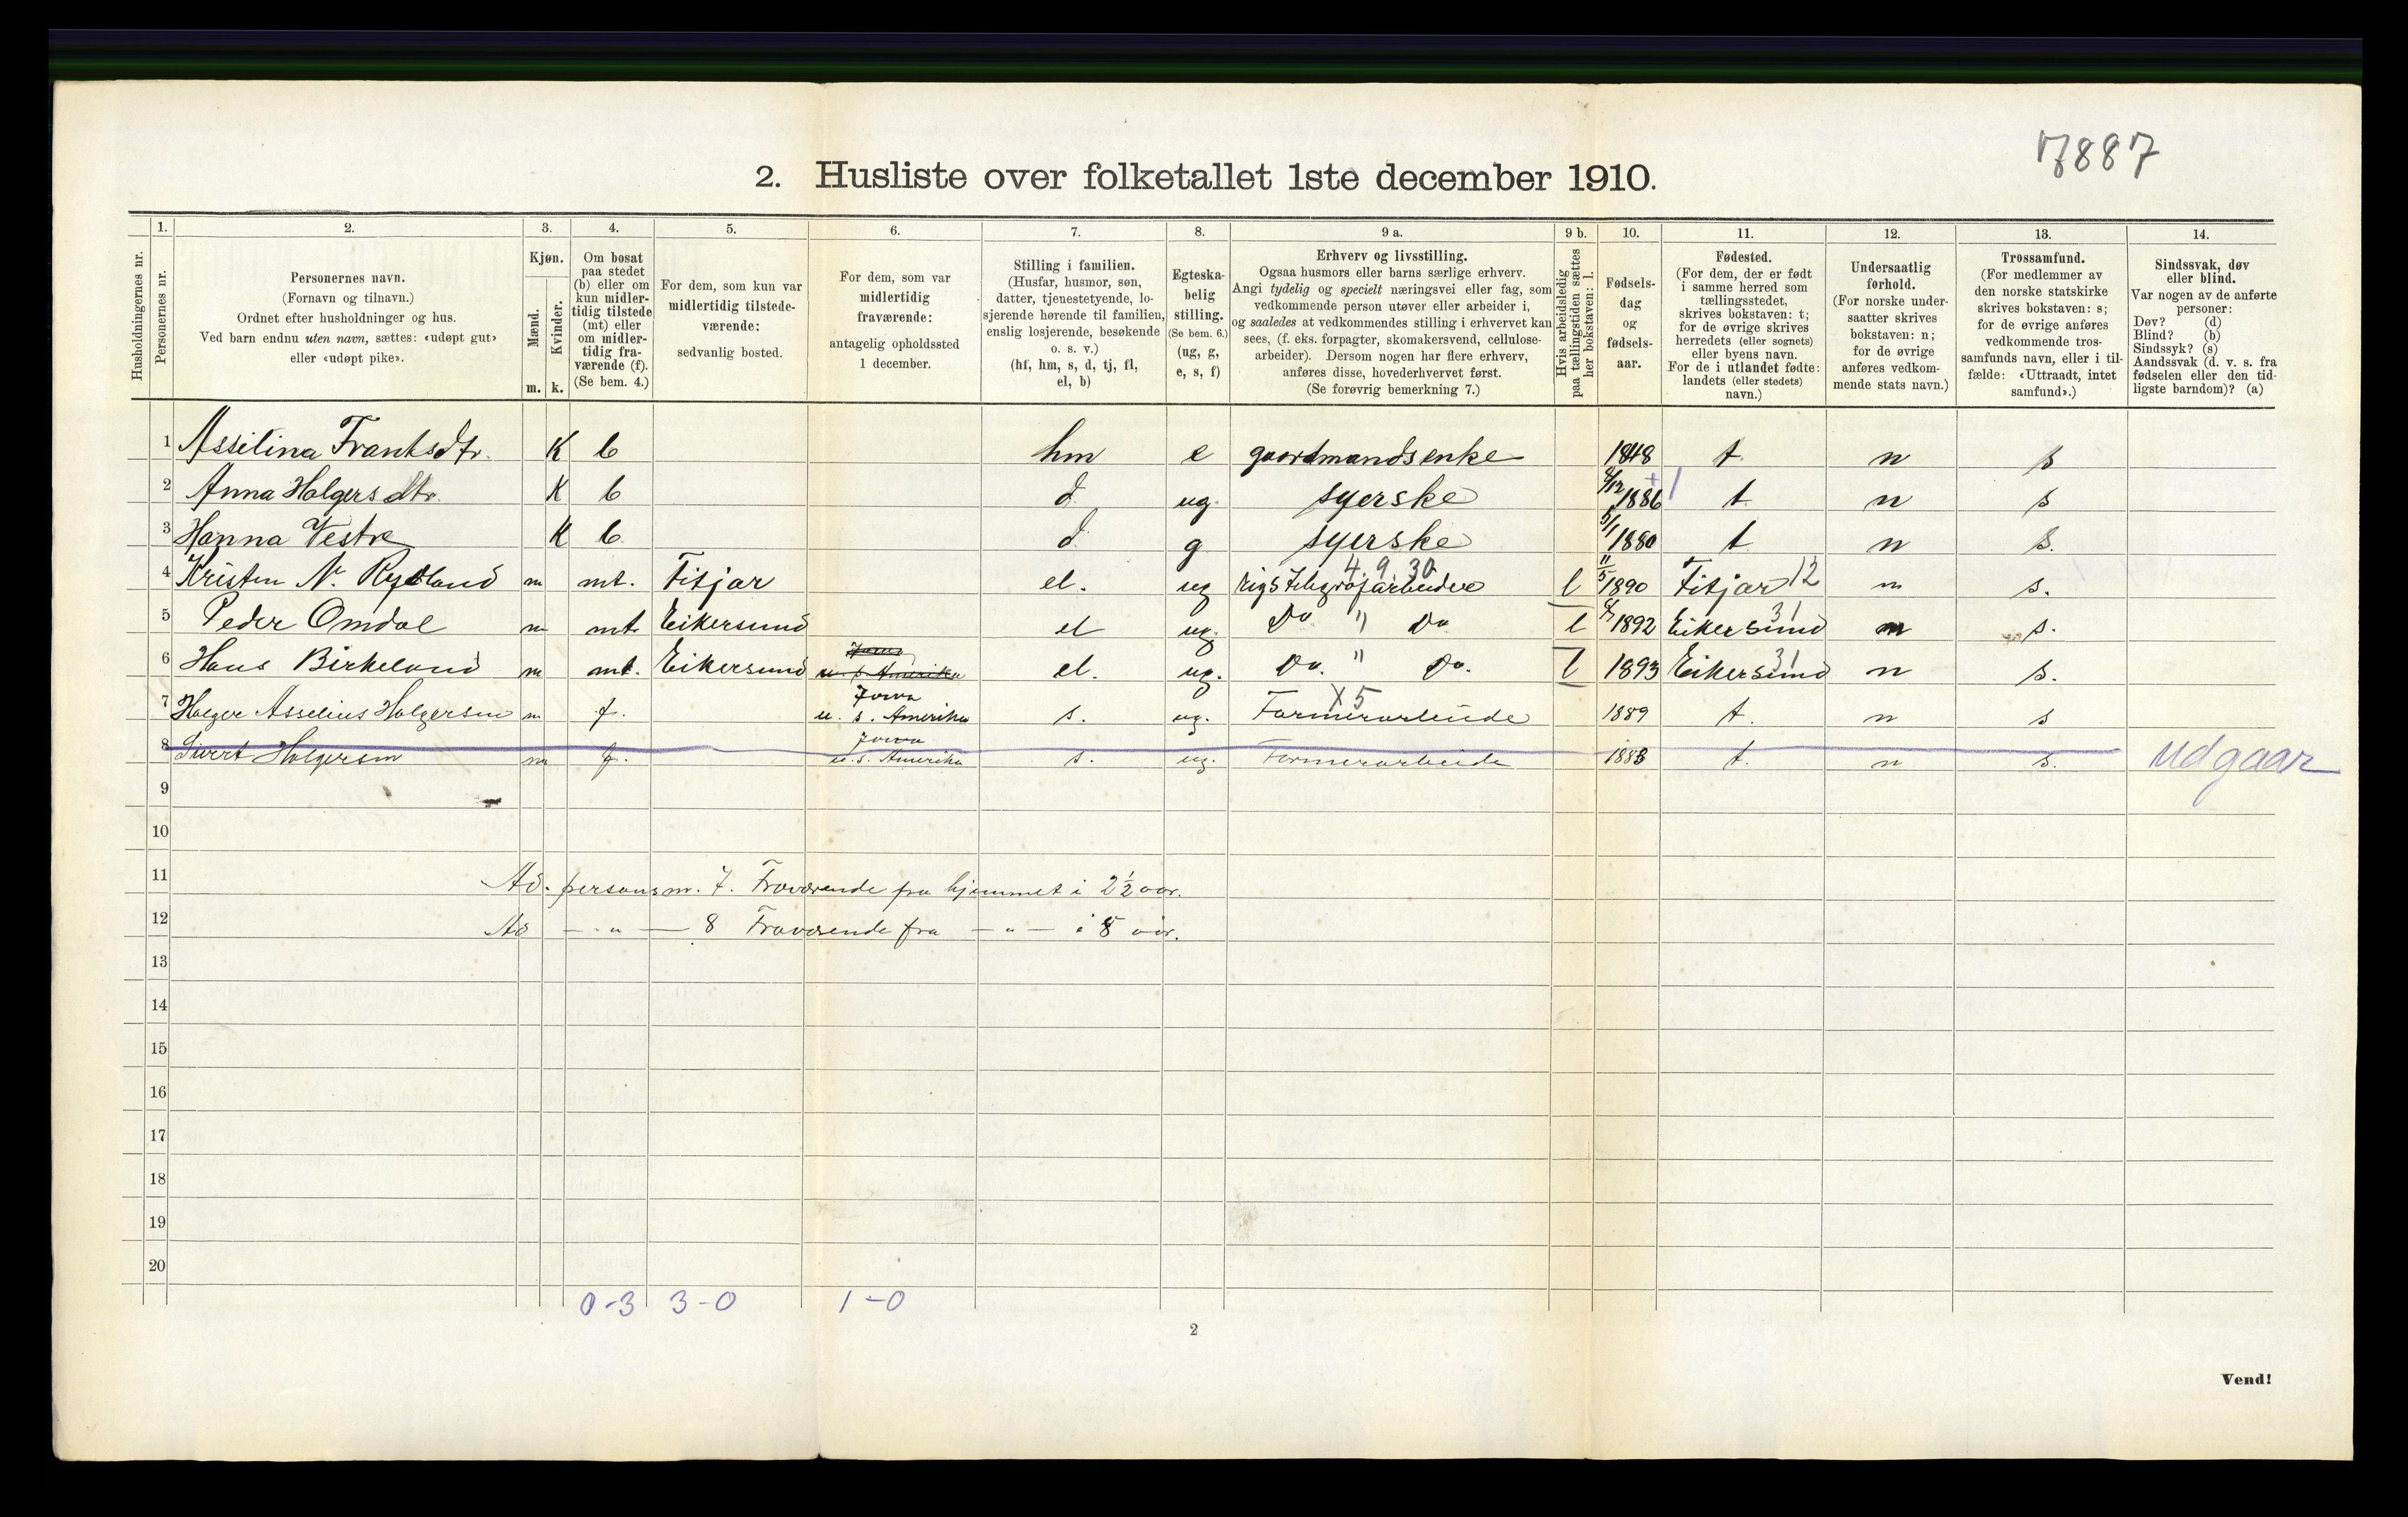 7887
2. Husliste over folketallet 1ste december 1910.
1. 2. 3. 4. 5. 6. 7. 8. 9 a. 9 b. 10. 11. 12. 13. 14.
Husholdningernes nr.
Personernes nr.
Personernes navn.
(Fornavn og tilnavn.)
Ordnet efter husholdninger og hus.
Ved barn endnu uten navn, sættes: «udøpt gut»
eller «udøpt pike».
Kjøn.
Mænd.
Kvinder.
m. k.
Om bosat
paa stedet
(b) eller om
kun midler-
tidig tilstede
(mt) eller
om midler-
tidig fra-
værende (f).
(Se bem. 4.)
For dem, som kun var
midlertidig tilstede-
værende:
sedvanlig bosted.
For dem, som var
midlertidig
fraværende:
antagelig opholdssted
1 december.
Stilling i familien.
(Husfar, husmor, søn,
datter, tjenestetyende, lo-
sjerende hørende til familien,
enslig losjerende, besøkende
o. s. v.)
(hf, hm, s, d, tj, fl,
el, b)
Egteska-
belig
stilling.
(Se bem. 6.)
(ug, g,
e, s, f)
Erhverv og livsstilling.
Ogsaa husmors eller barns særlige erhverv.
Angi tydelig og specielt næringsvei eller fag, som
vedkommende person utøver eller arbeider i,
og saaledes at vedkommendes stilling i erhvervet kan
sees, (f. eks. forpagter, skomakersvend, cellulose-
arbeider). Dersom nogen har flere erhverv,
anføres disse, hovederhvervet først.
(Se forøvrig bemerkning 7.)
Hvis arbeidsledig
paa tællingstiden sættes
her bokstaven: l.
Fødsels-
dag
og
fødsels-
aar.
Fødested.
(For dem, der er født
i samme herred som
tællingsstedet,
skrives bokstaven: t;
for de øvrige skrives
herredets (eller sognets)
eller byens navn.
For de i utlandet fødte:
landets (eller stedets)
navn.)
Undersaatlig
forhold.
(For norske under-
saatter skrives
bokstaven: n;
for de øvrige
anføres vedkom-
mende stats navn.)
Trossamfund.
(For medlemmer av
den norske statskirke
skrives bokstaven: s;
for de øvrige anføres
vedkommende tros-
samfunds navn, eller i til-
fælde: «Uttraadt, intet
samfund».)
Sindssvak, døv
eller blind.
Var nogen av de anførte
personer:
Døv? (d)
Blind? (b)
Sindssyk? (s)
Aandssvak (d. v. s. fra
fødselen eller den tid-
ligste barndom)? (a)
1 Asselina Frantsdtr. K b hm e gaardmandsenke 1848 t. n s
2 Anna Holgersdtr. K b d ug. syerske 8/12 1886 t n s
3 Hanna Vestre K b d g syerske 5/1 1880 t n s.
4 9 30
4 Kristen N. Rydland m mt. Fitjar el. ug rigstelegrafarbeider l 11/5 1890 Fitjar 12 n s.
5 Peder Omdal m mt Eikersund el ug. Do " Do l 1892 Eikersund 31 n s.
6 Hans Birkeland m mt. Eikersund u. s. Amerika el. ug. Do. " Do. l 1893 Eikersund 31 n s.
Jowa X5
7 Holger Asselius Holgersen m f. u. s. Amerika s. ug. Farmerarbeide 1889 t. n s
Jowa
8 Sivert Holgersen m f. u. s. Amerika s. ug. Farmerarbeide 1883 t. n s. udgaar
9
10
11 Ad. personsnr. 7. Fraværende fra hjemmet i 2½ aar.
12 Ad — " — 8 Fraværende fra — " — i 8 aar.
13
14
15
16
17
18
19
20
0-3 3-0 1-0
2
Vend!